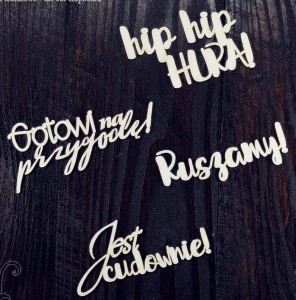 hip hip
HURA!
Gotowi na
przygodę!
Ruszamy!
Jest
cudownie!